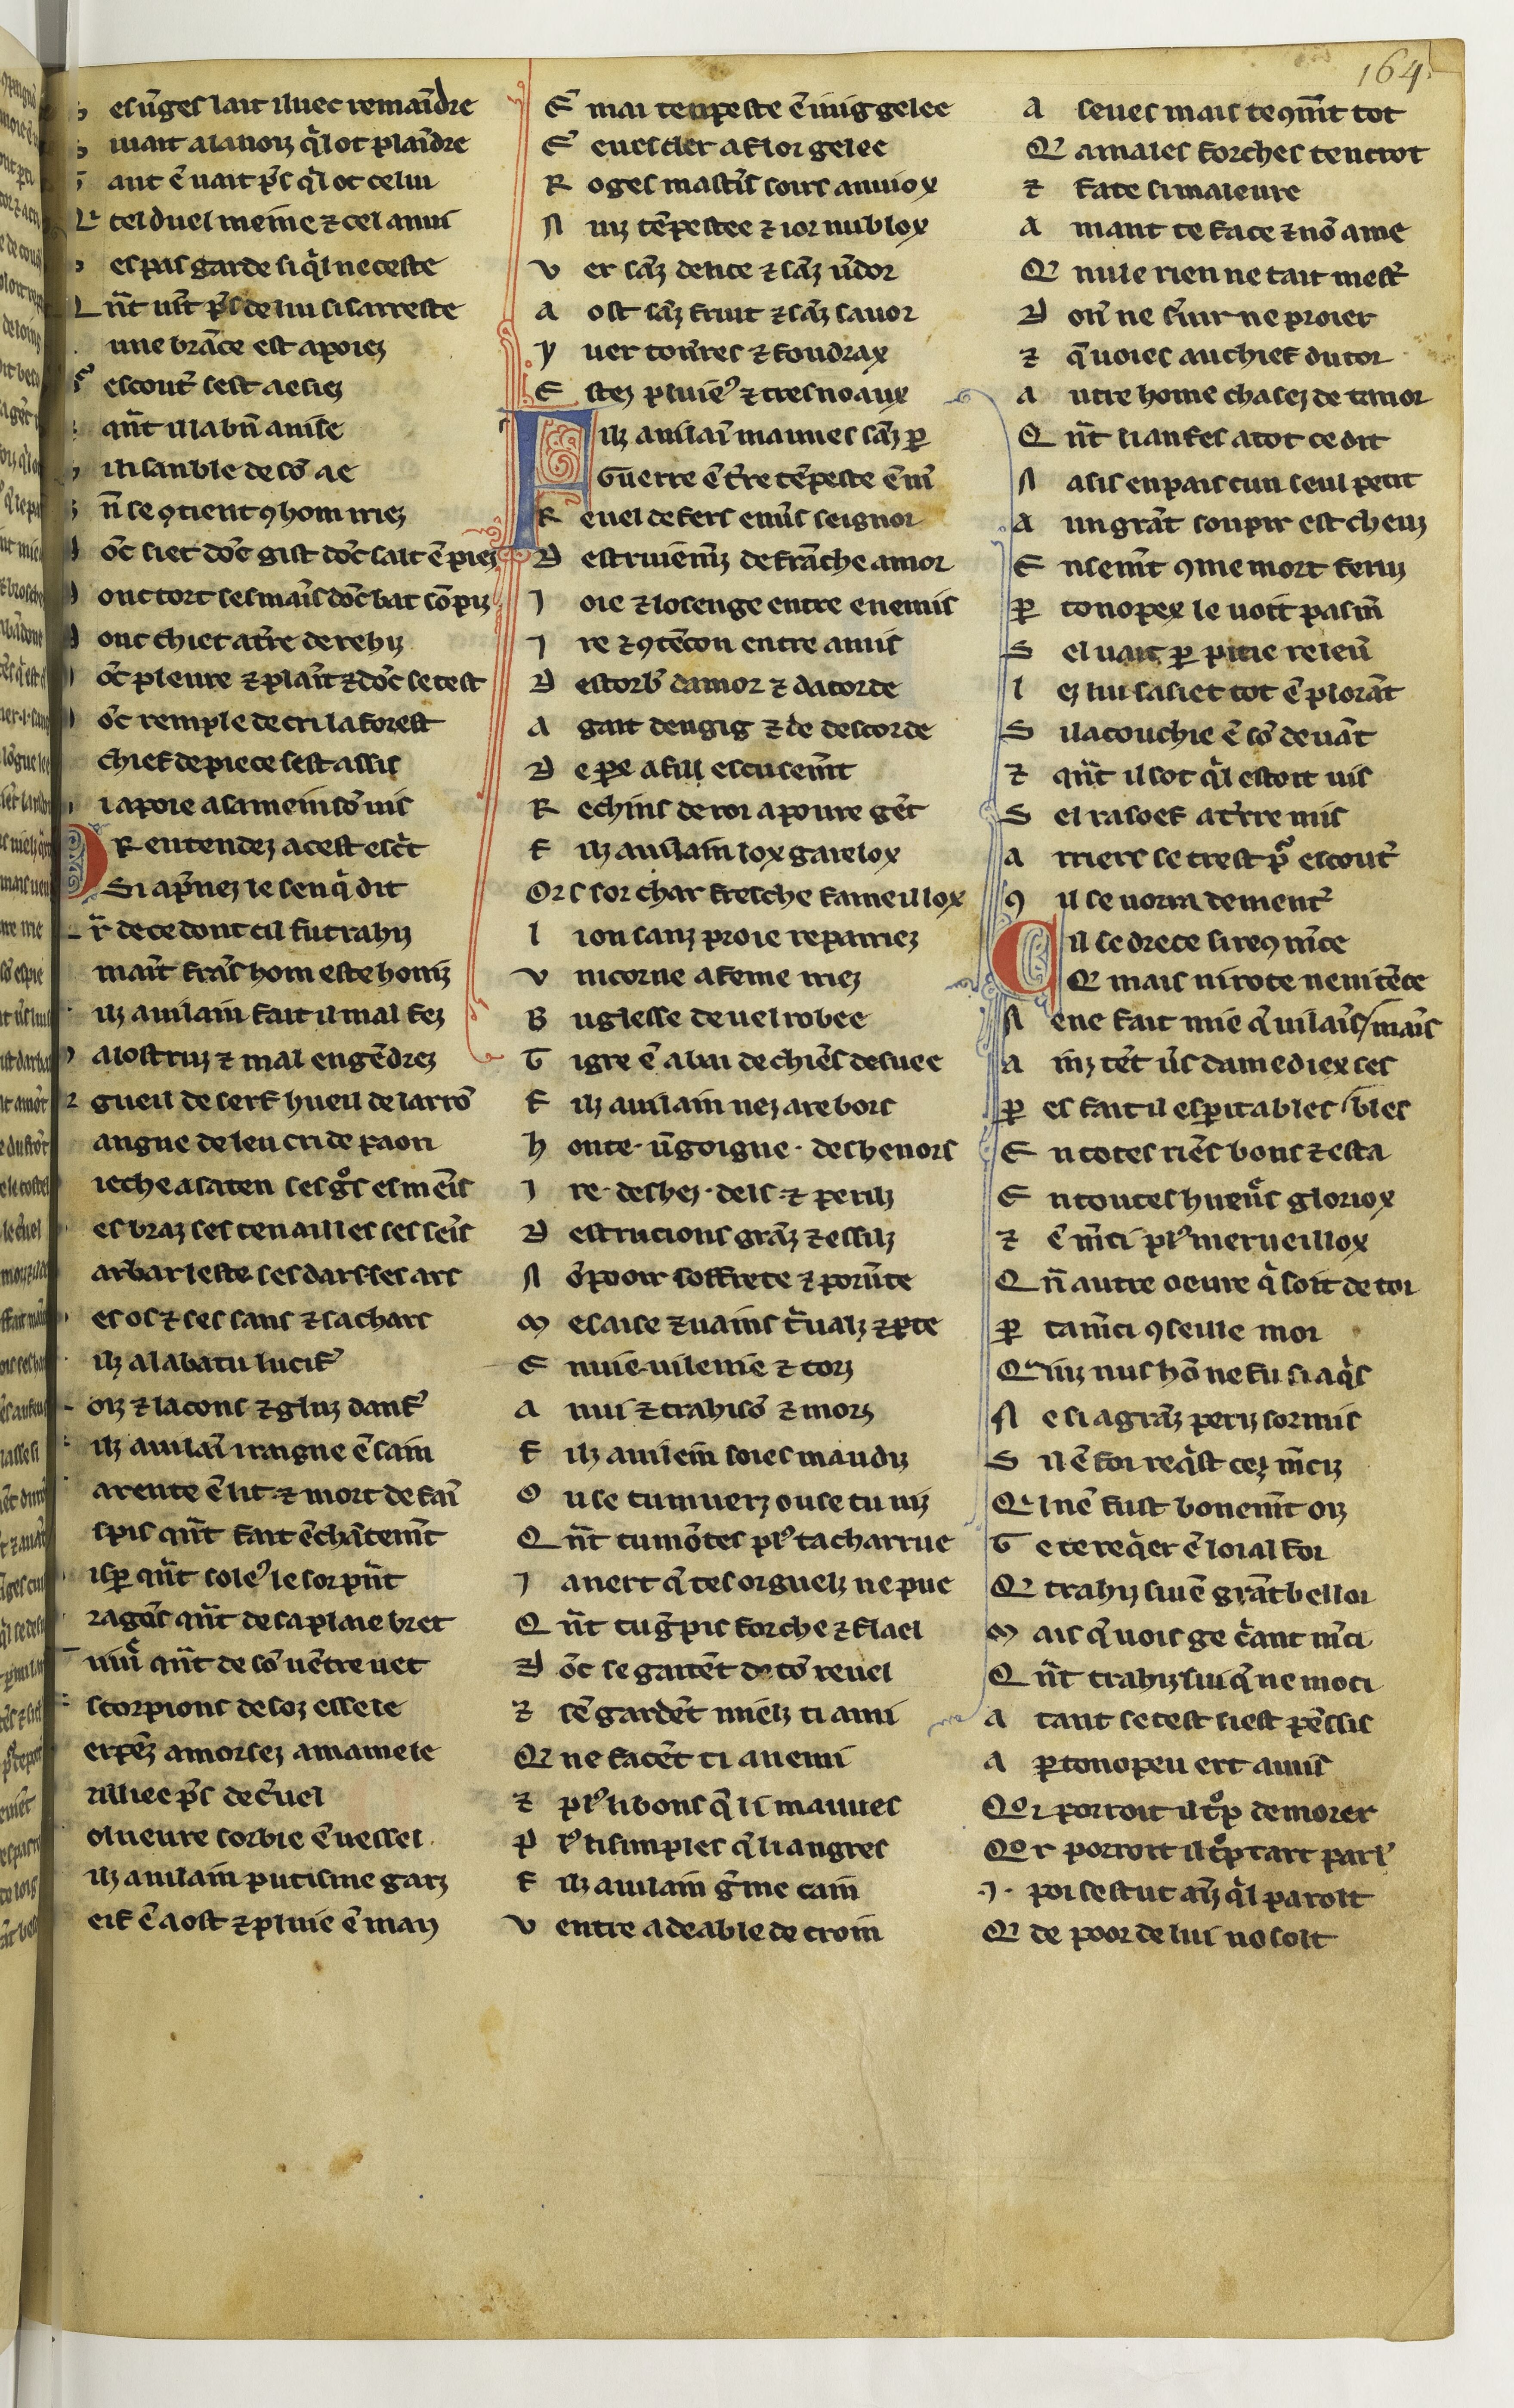 164
es u͛ges lait iluec remaīdre
uait alauoiz q̉l ot plaīdre
ant ē uait p̄s q̉l ot celui
tel duel meine ⁊ tel anui
es pas garde si q̉l ne ceste
n̄t uīt p̄s de lui si sarreste
une brāce est apoiez
escout͛ sest aesiez
qn̄t il la bn̄ auise
il i sanble de sō ae
n̄ se ꝯtient ꝯ hom iriez
ōc siet dōc gist dōc salt ē piez
onc tort ses maīs dōc bat sō piz
onc chiet at̄re derehiz
ōc pleure ⁊ plaīt ⁊ dōc se test
ōc remple de cri la forest
chief de piece sest assis
i apoie a sa mein sō uis
OR entendez a cest esc̉t
Si ap̄nez le sen q̉ dit
r̄ de ce dont cil fu trahiz
maīt frāc hom este honiz
ilz a uilain fait il mal fez
alostruz ⁊ mal engēdrez
gueil de serf hueil de larrō
angue de leu cri de paon
ieche a saten ses g̊s es mēis
es braz ses tenailles ses seīs
arbarleste ses dars ses arc
es os ⁊ ses sans ⁊ sa chars
ilz alabatu lucif͛
oiz ⁊ lacons ⁊ gluz danf͛
ilz a uilaī iraigne ē sain
arente ē lit ⁊ mort de faī
spis qn̄t fait ēchātemīt
isꝑ qn̄t soleꝰ le sorpn̄t
ragōs qn̄t de sa plaie bret
uiu̓ qn̄t de sō uētre uet
scorpions de soz essele
erpēz amorsez a mamele
olueure sorbie ē uessel
ilz a uilain putisme garz
eif ē aost ⁊ pluie ē marz
E mai tenpeste ē iuig gelee
E eues cler a flor gelee
R oges mastīs sours anuiox
N uiz tēpestee ⁊ ior nublox
V er sāz dence ⁊ sāz u͛dor
A ost sāz fruit ⁊ sāz sauor
Y uer ton̄res ⁊ foudrax
E stez pluieꝰ ⁊ tres noaux
Filz a uilaī mauues sāz ꝑ
Guerre ē t̄re tēpeste ē m̄
R euel de sers enu͛s seignor
D estruiemīz de frāche amor
I oie ⁊ losenge entre enemis
I re ⁊ ꝯtēcon entre amis
D estorb͛ damor ⁊ dacorde
A gait dengig ⁊ de descorde
D e ꝑe a fill escusemīt
R echins de roi a poure gēt
F ilz a uilain lox garelox
Ors sor char fresche fameillox
L ion sanz proie repairiez
V nicorne a feme iriez
B uglesse de uel robee
T igre ē abai de chiēs desuee
F ilz a uilain nez arebors
H onte · u͛goigne · deshenors
I re · deshez · dels · ⁊ perilz
D estrucions grāz ⁊ essilz
N ō pooir soffrete ⁊ pou͛te
M esaise ⁊ uains t̉ualz ⁊ ꝑte
E nuie uilenie ⁊ torz
A nui ⁊ trahisō ⁊ morz
F ilz a uilein soies maudiz
O u se tu muerz ou se tu uiz
Q n̄t tu mōtes plꝰ ta charrue
I a nert q̄ tes orguelz ne pue
Q n̄t tu g̉pis forche ⁊ flael
D ōc se gaitēt de tō reuel
⁊ sē gardēt mielz ti ami
Q͛ ne facēt ti anemi
⁊ plꝰ li bons q̄ li mauues
P lꝰ li simples q̄ li angres
F ilz a uilain g̉me cain
V entre a deable de troin
A seues mais te ꝯmīt tot
Q͛ a males forches tencrot
⁊ face si maleure
A mant te face ⁊ nō ame
Q͛ nule rien ne tait mest͛
D on̄ ne s͛uir ne proier
⁊ q̄ uoies au chief du tor
A utre home chasez de tamor
Q n̄t li anfes a tot ce dit
N asis en pais cun seul petit
A un grāt soupir est cheuz
E nsemīt ꝯme mort feruz
P artonopex le uoit pasm̄
S el uait ꝑ pitie releu͛
L ez lui sasiet tot ē plorāt
S i la couchie ē sō deuāt
⁊ qn̄t il sot q̉l estoit uis
S el rasoef a t̄rre mis
A rriers se trest p̊ escout͛
Ꝯ il se uorra dement͛
Cil se drece si reꝯmīce
Q͛ mais ni rote ne nitēce
N ene fait mie q̄ uilaīs / maīs
A īz tēt u͛s damediex ses
P es fait il esperitables / bles
E n totes riēs bons ⁊ esta
E n toutes hueu͛s gloriox
⁊ ē m͛ci plꝰ merueillox
Q n̄ autre oeure q̉ soit de toi
P ar ta m͛ci ꝯseille moi
Q͛ uiz nus hō ne fu si aq̉s
N e si a grāz periz sormis
S il ē foi req̉st tez m͛ciz
Q͛ l nē fust bonemīt oiz
G e te req̉er ē loial foi
Q͛ trahiz sui ē grāt belloi
M ais q̄ uois ge c̉ant m͛ci
Q n̄t trahiz sui q̄ ne moci
A tant se test si est pēssis
A ꝑtonopeu ert auis
Q͛ i porroit il t̊p demorer
Q͛ i porroit il t̊p tart parl͛
I · poi sestut aīz q̉l paroit
Q͛ de poor de lui no soit